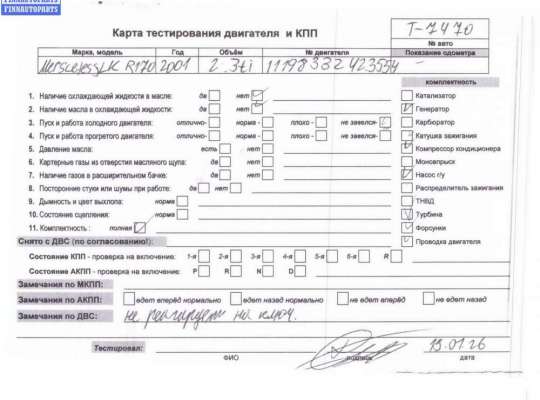 FINNAUTOPARTS
Карта тестирования двигателя и КПП
T-7470
№ авто
Марка, модель Год Объём № двигателя Показание одометра
R170 2001 2.3ti 11198332423554 -
комплектность
1. Наличие охлаждающей жидкости в масле: да нет Катализатор
2. Наличие масла в охлаждающей жидкости: да нет Генератор
3. Пуск и работа холодного двигателя: отлично- норма - плохо - не завелся- Карбюратор
4. Пуск и работа прогретого двигателя: отлично- норма - плохо - не завелся- Катушка зажигания
5. Давление масла: есть нет Компрессор кондиционера
6. Картерные газы из отверстия масляного щупа: да нет Моновпрыск
7. Наличие газов в расширительном бачке: да нет Насос г/у
8. Посторонние стуки или шумы при работе: да нет Распределитель зажигания
9. Дымность и цвет выхлопа: норма ТНВД
10. Состояние сцепления: норма Турбина
11. Комплектность : полная Форсунки
Снято с ДВС (по согласованию!): Проводка двигателя
Состояние КПП - проверка на включение: 1-я 2-я 3-я 4-я 5-я 6-я R
Состояние АКПП - проверка на включение: P R N D
Замечания по МКПП:
Замечания по АКПП: едет вперёд нормально едет назад нормально не едет вперёд не едет назад
Замечания по ДВС: не реагирует на ключ.
Тестировал: 13.01.26
ФИО подпись дата